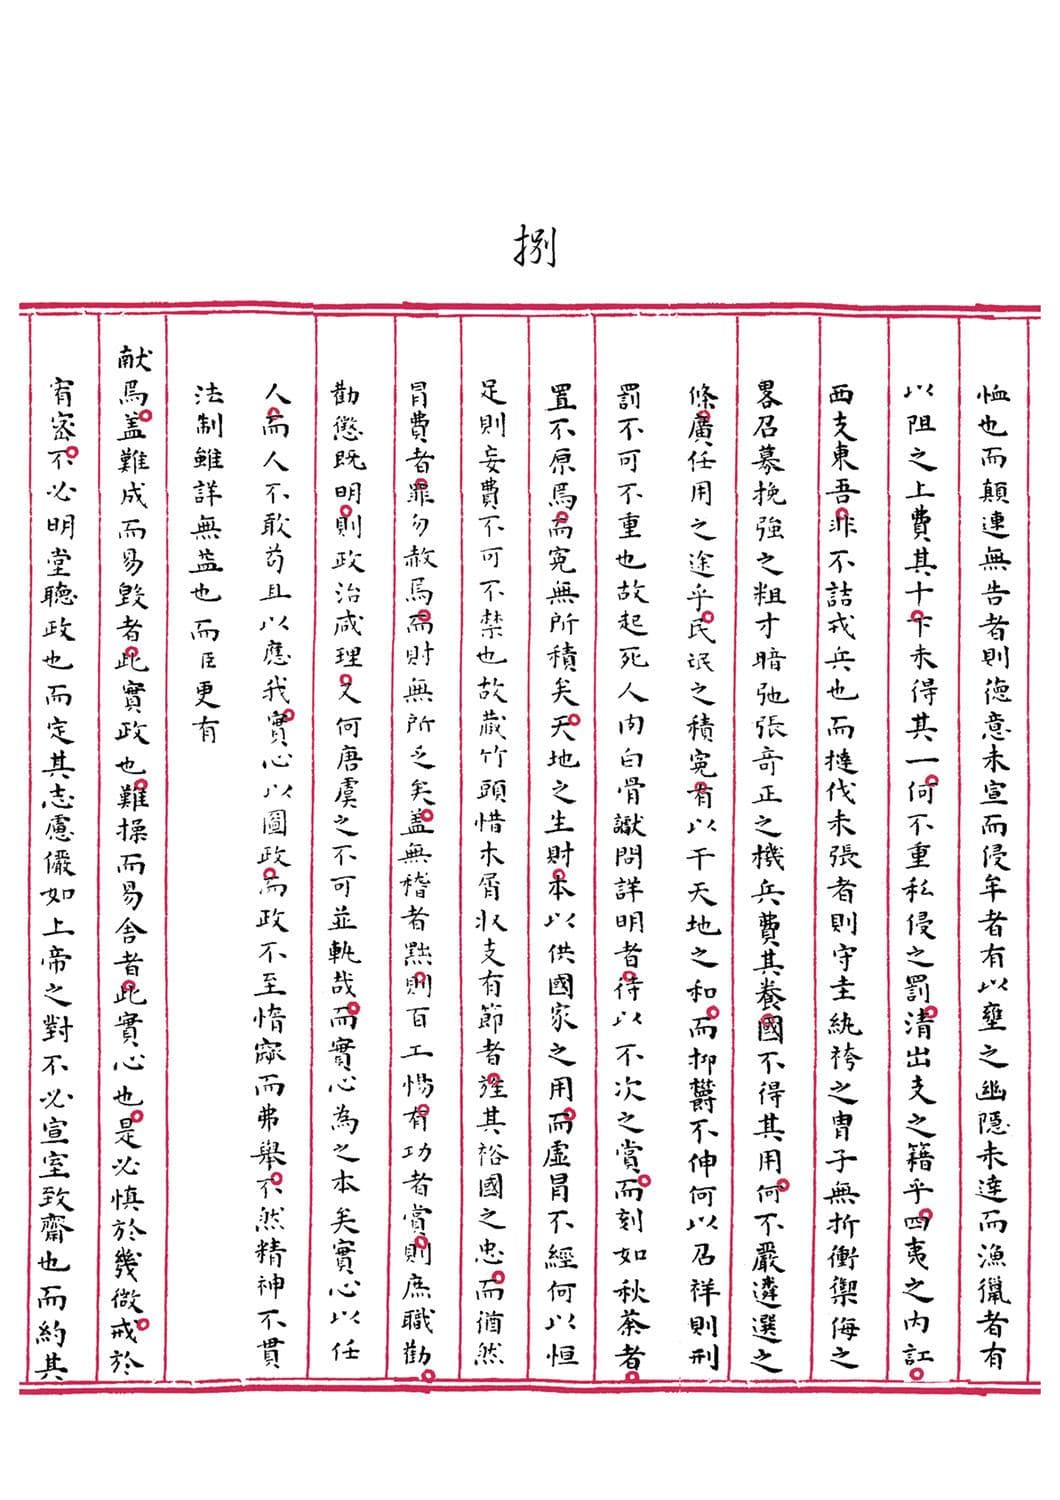 捌
恤也而顛連無告者則德意未宣而侵牟者有以壅之幽隱未達而漁獵者有
以阻之上費其十下未得其一何不重私侵之罰清出支之籍乎四夷之內訌
西支東吾非不詰戎兵也而撻伐未張者則守圭紈袴之冑子無折衝禦侮之
畧召募挽強之粗才暗弛張奇正之機兵費其養國不得其用何不嚴遴選之
條廣任用之途乎民氓之積冤有以干天地之和而抑欝不伸何以召祥則刑
罰不可不重也故起死人肉白骨讞問詳明者待以不次之賞而刻如秋荼者
置不原焉而冤無所積矣天地之生財本以供國家之用而虛冒不經何以恒
足則妄費不可不禁也故藏竹頭惜木屑收支有節者旌其裕國之忠而猶然
冒費者罪勿赦焉而財無所乏矣盖無稽者黜則百工惕有功者賞則庶職勸
勸懲既明則政治咸理又何唐虞之不可並軌哉而實心為之本矣實心以任
人而人不敢苟且以應我實心以圖政而政不至惰窳而弗舉不然精神不貫
法制雖詳無益也而臣更有
献焉盖難成而易毀者此實政也難操而易舍者此實心也是必慎於幾微戒於
宥密不必明堂聽政也而定其志慮儼如上帝之對不必宣室致齋也而約其